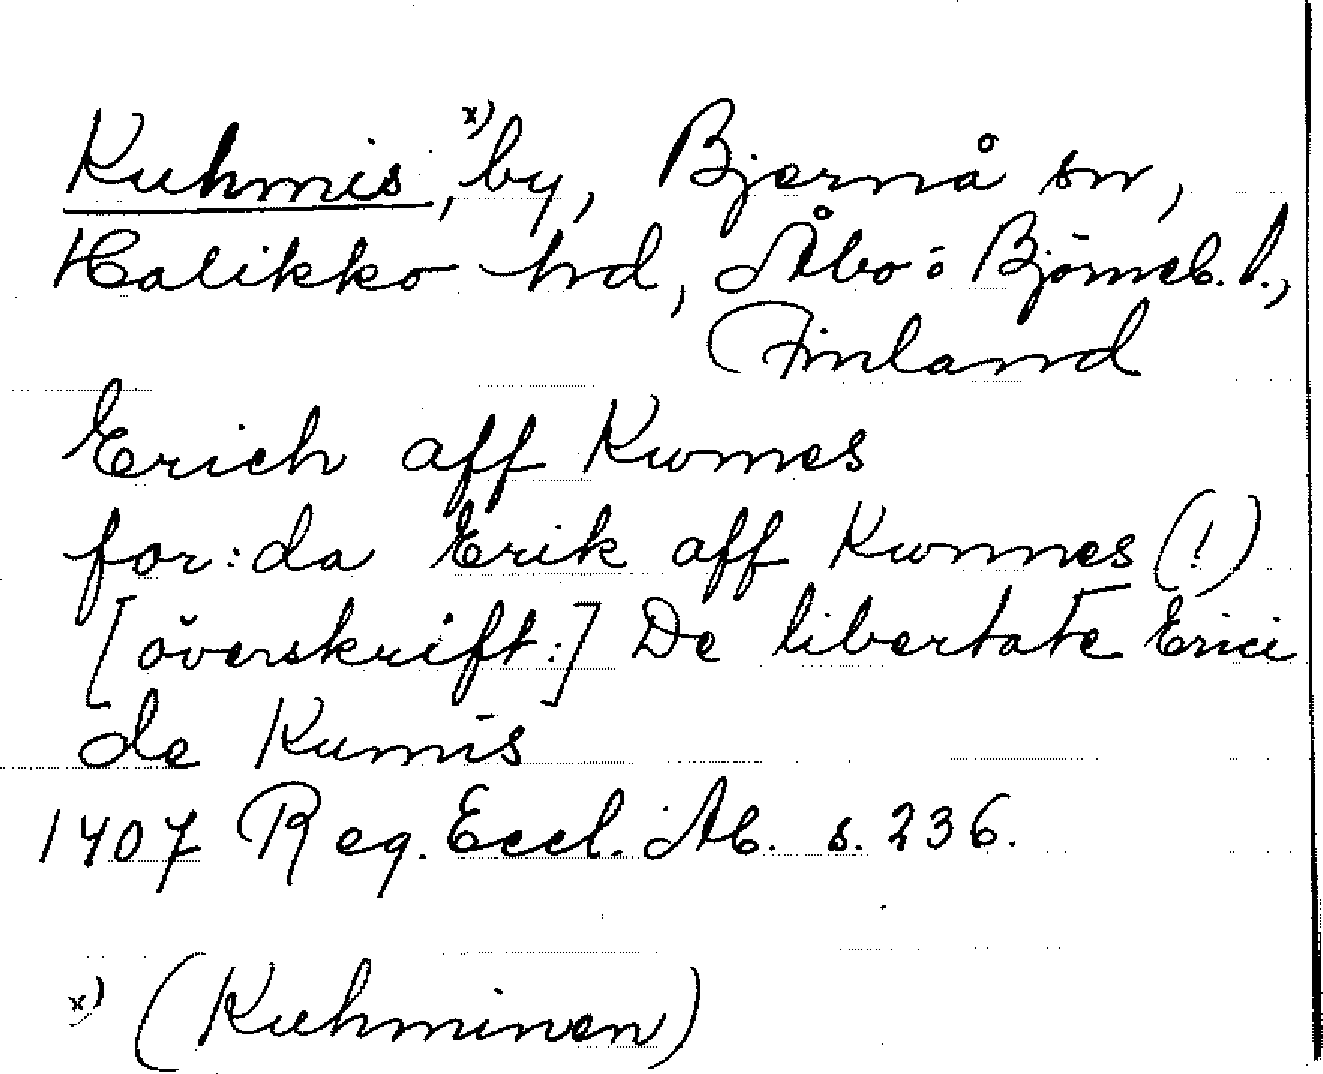 Kuhmis,ˣ⁾ by, Bjernå sn,
Halikko hd, Åbo o Björneb. l.,
Finland
Erich aff Kwmes
for:da Erik aff Kwnnes (!)
[överskrift:] De libertate Erici
de Kumis
1407 Reg. Eccl. Ab. s. 236.
x) (Kuhminen)